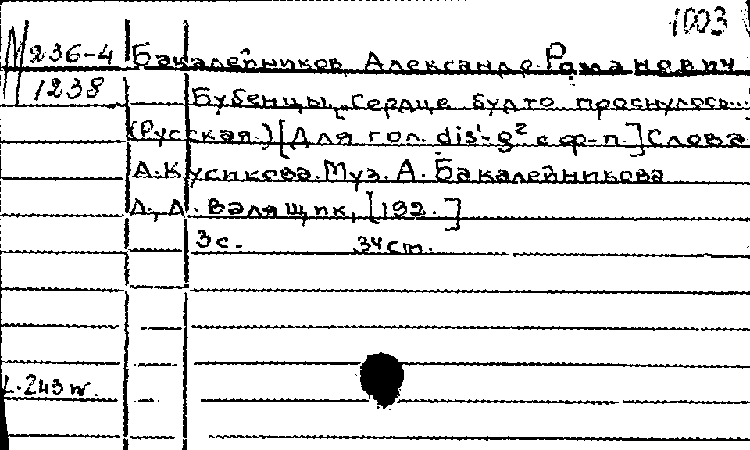 1003
М 236-4 Бакалейников, Александр Романович
1238 Бубенцы. "Сердце будто проснулось..."
(Русская.) [Для гол. dis¹-g² с ф-п.] Слова
А. Кусикова. Муз. А. Бакалейникова
Л., А. Валящик, [192. ]
3 с. 34 см.